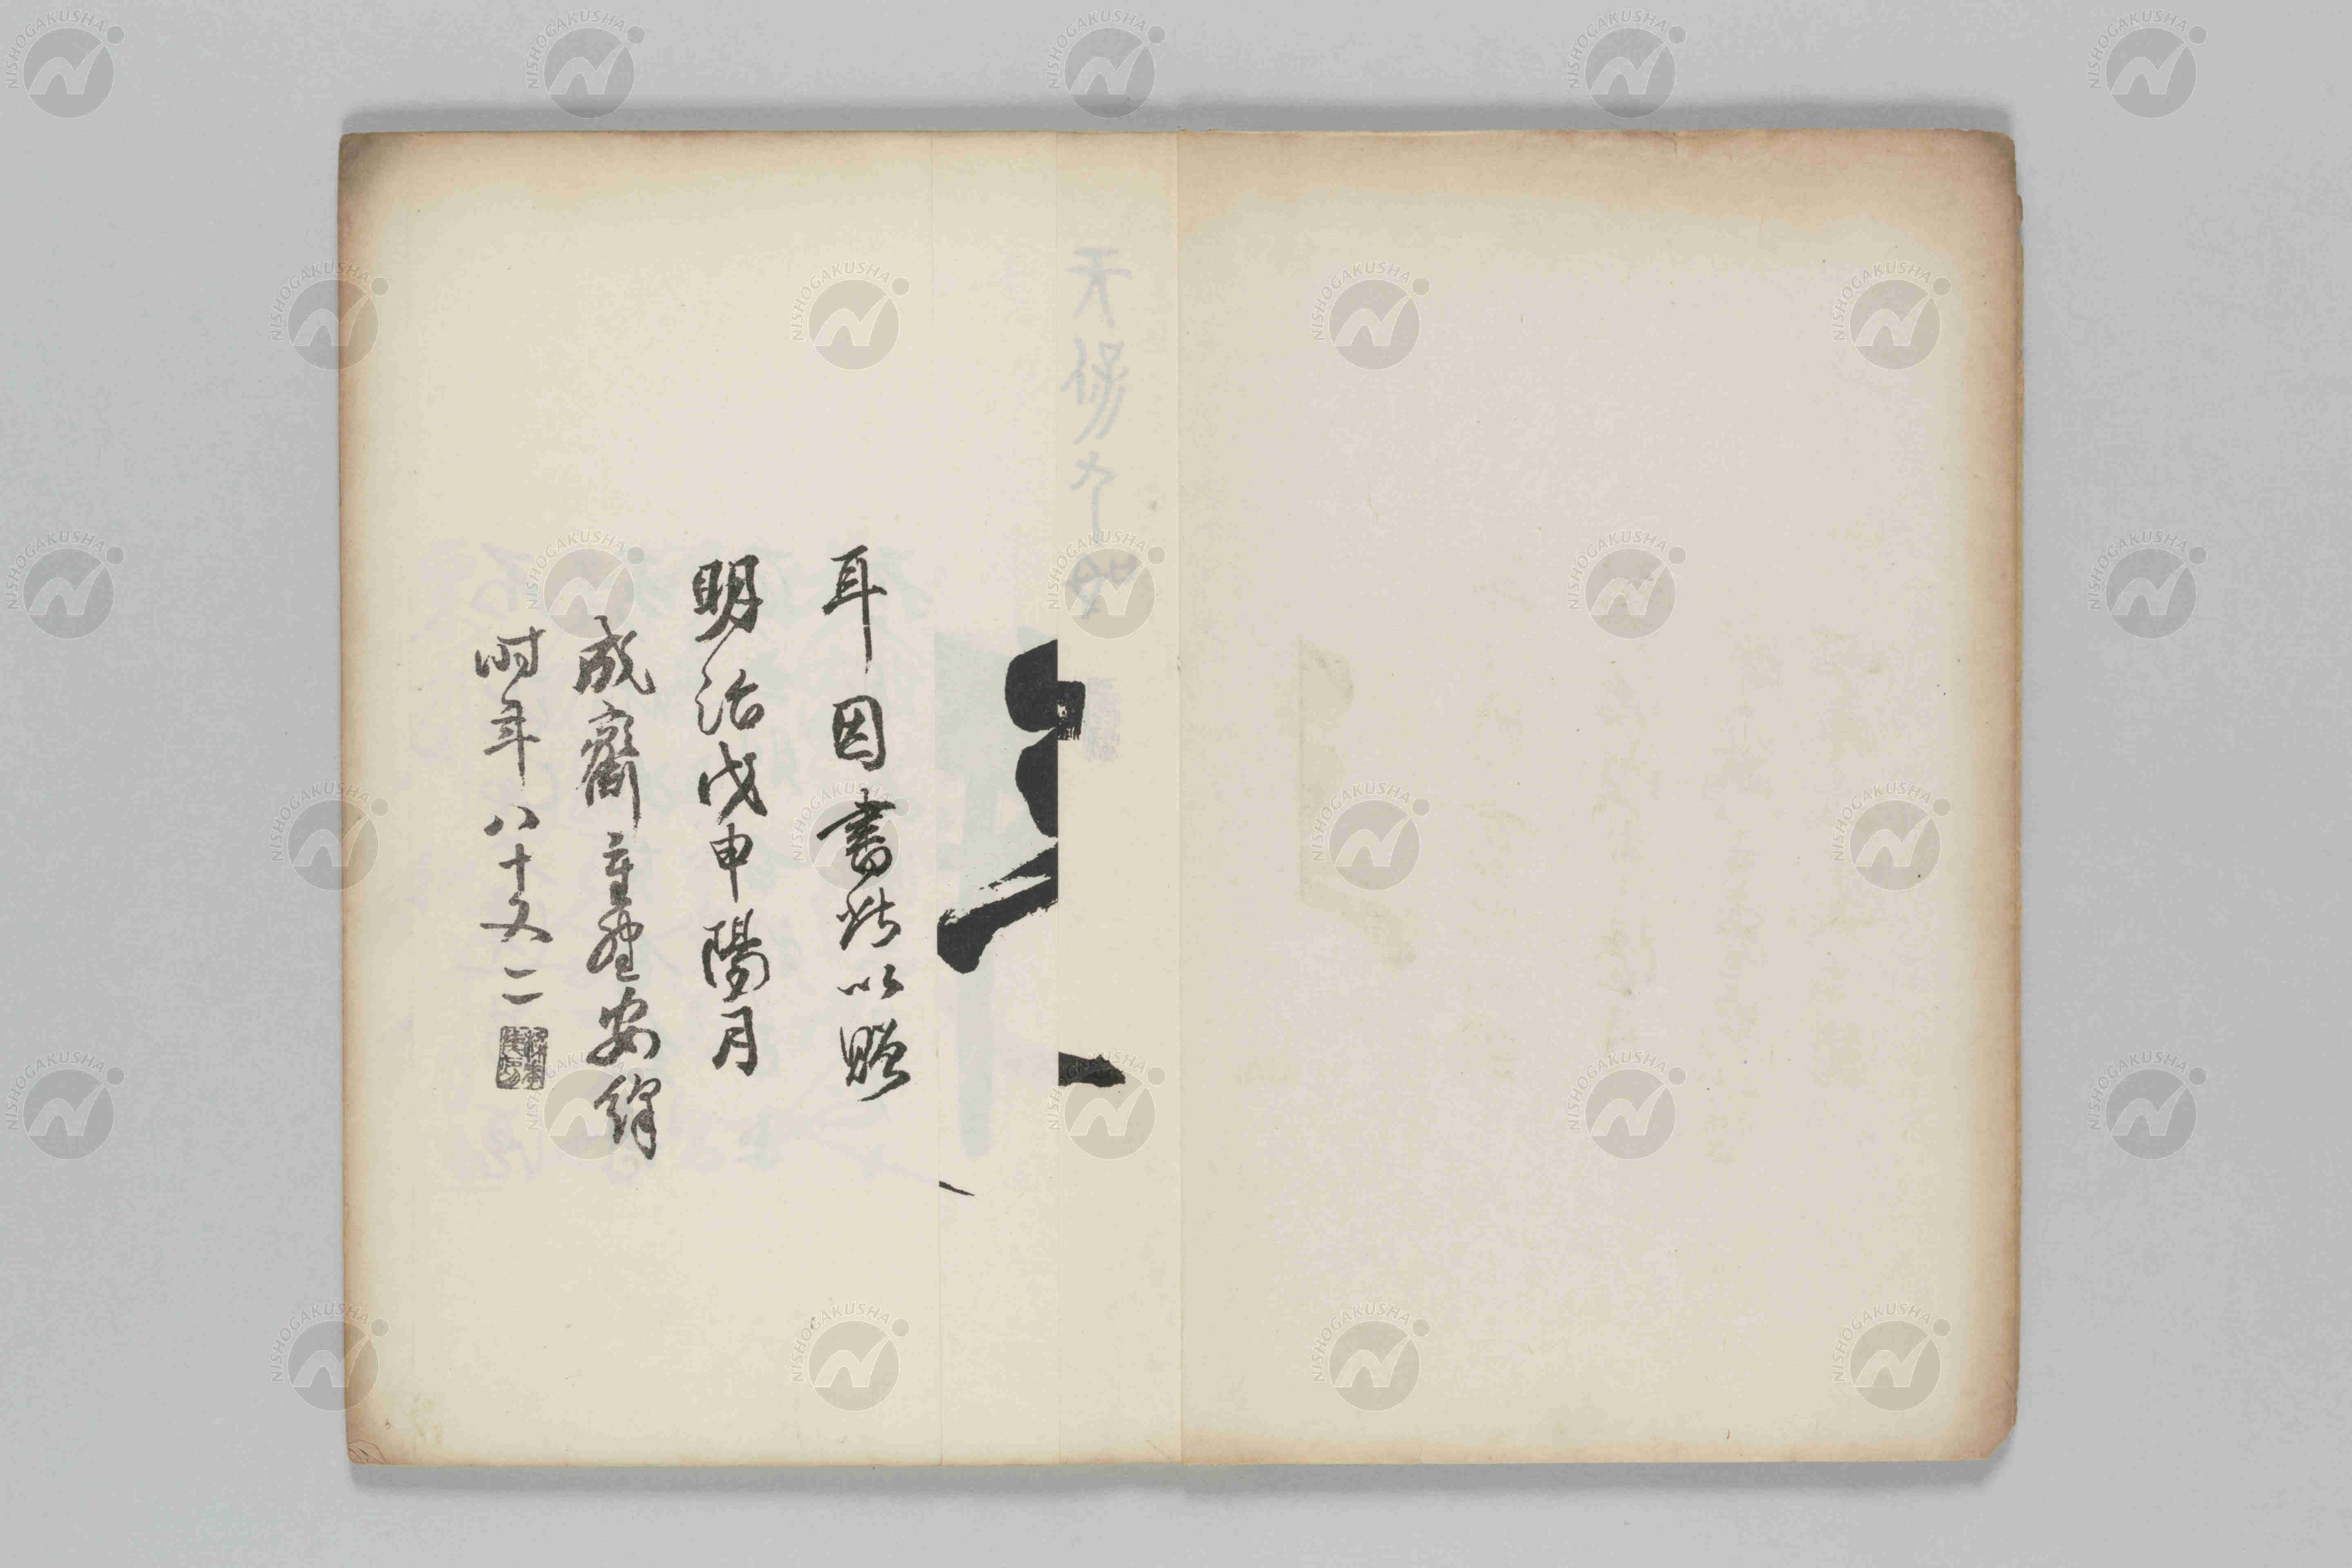 天保九如
耳因書此以贈
明治戊申陽月
成齋重野安繹
時年八十又二
NISHOGAKUSHA